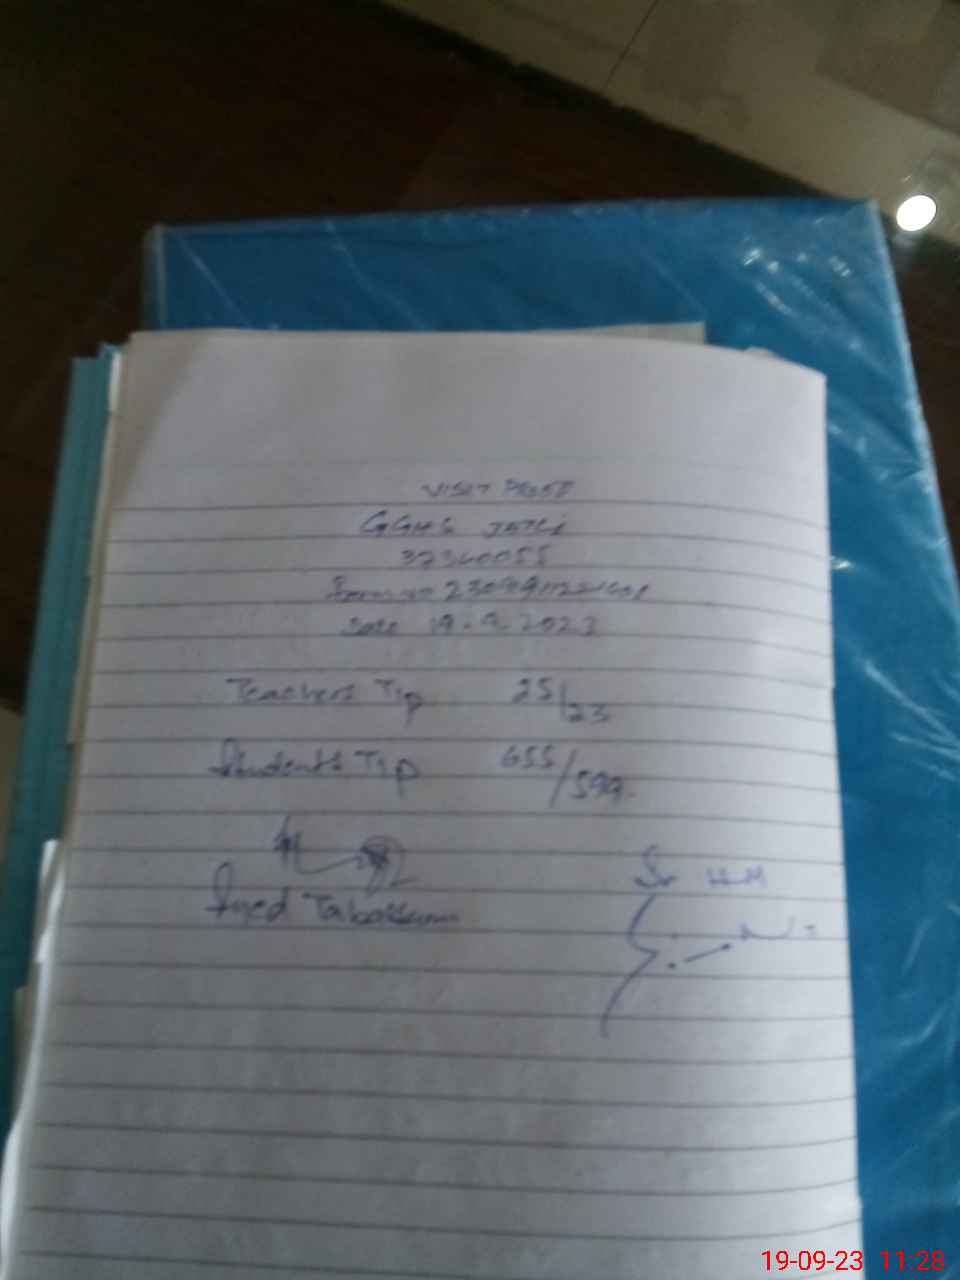 VISIT PROOF
GGHS JATLi
37340055
Date 19.9.2023
Teachers T/P 25/23
Students T/P 655/599
Syed Tabassum
Sr HM
19-09-23 11:28